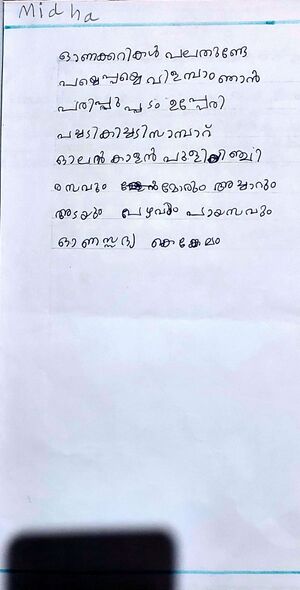 Midha
ഓണക്കറികൾ പലതുണ്ടേ
പയ്യെപ്പയ്യെ വിളമ്പാം ഞാൻ
പരിപ്പു പപ്പടം ഉപ്പേരി
പച്ചടി കിച്ചടി സാമ്പാറ്
ഓലൻ കാളൻ പുളിയിഞ്ചി
രസവും മോരും അച്ചാറും
അടയും പഴവും പായസവും
ഓണസ്സദ്യ കെങ്കേമം